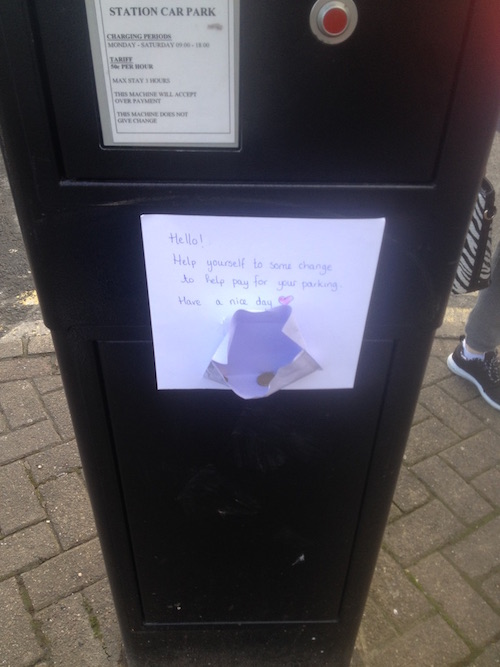 STATION CAR PARK
CHARGING PERIODS
MONDAY - SATURDAY 09:00 - 18:00
TARIFF
50p PER HOUR
MAX STAY 3 HOURS
THIS MACHINE WILL ACCEPT
OVER PAYMENT
THIS MACHINE DOES NOT
GIVE CHANGE
Hello!
Help yourself to some change
to help pay for your parking.
Have a nice day